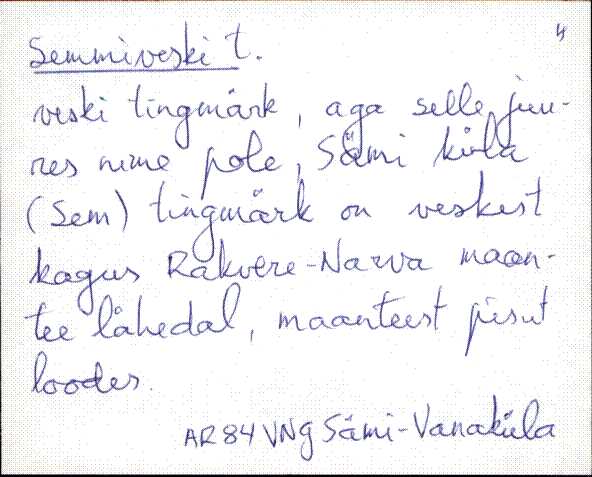 4
Semmiveski t.
veski tingmärk, aga selle juu-
res nime pole, Sämi küla
(Sem) tingmärk on veskist
kagus Rakvere-Narva maan-
tee lähedal, maanteest pisut
loodes.
AR84VNg Sämi-Vanaküla